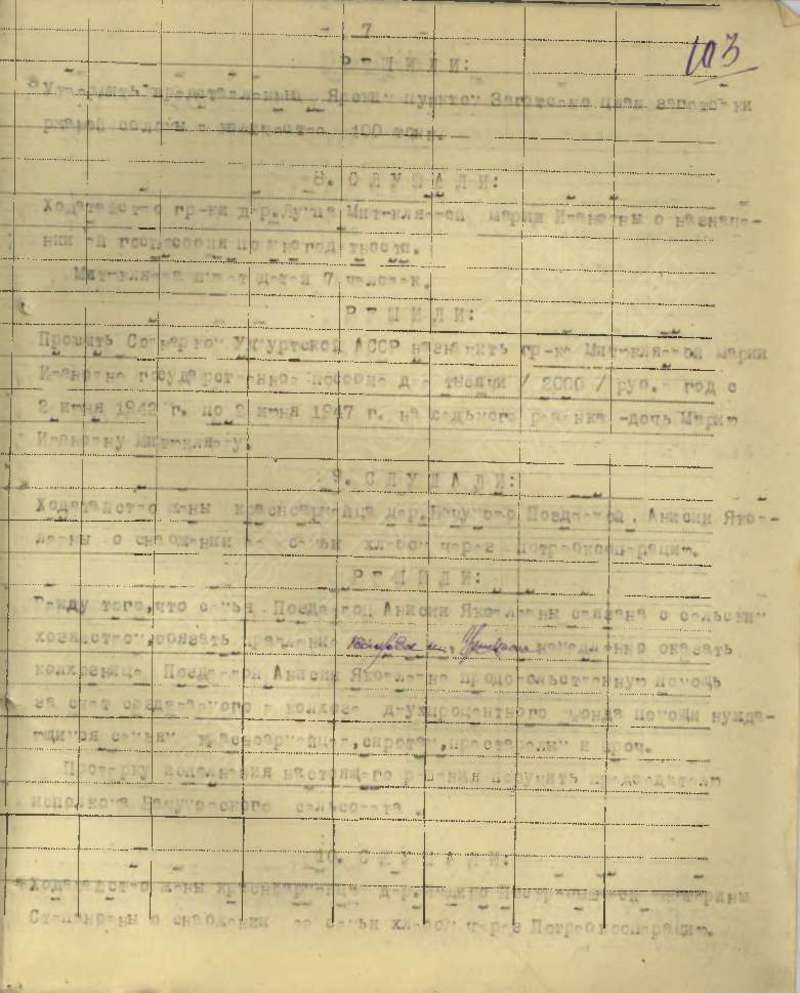 - 7 -
103
Р Е Ш И Л И:
Утвердить представленный Ярским пунктом Заготсено план заготовки
ржаной соломы в количестве 100 тонн.
8. С Л У Ш А Л И:
Ходатайство гр-ки дер. Марии Ивановны о назначе-
нии ей госпособия по многодетности.
имеет детей 7 человек.
Р Е Ш И Л И:
Просить Совнарком Удмуртской АССР назначить гр-ке Марии
Ивановне государственное пособие две тысячи / 2000 / руб. в год с
2 июня 1942 г. по 2 июня 1947 г. на седьмого ребенка -дочь Марию
Ивановну
9. С Л У Ш А Л И:
Ходатайство жены красноармейца дер. Поздеевой, Анисии Яко-
влевны о снабжении ее семьи хлебом через Потребкооперацию.
Р Е Ш И Л И:
Ввиду того,что семья Поздеевой Анисии Яковлевны связана с сельским
хозяйством,обязать правление немедленно оказать
колхознице Поздеевой Анисии Яковлевне продовольственную помощь
за счет создаваемого в колхозе двухпроцентного фонда помощи нужда-
ющимся семьям красноармейцев,сиротам,престарелым и проч.
Проверку исполнения настоящего решения поручить председателю
исполкома сельсовета.
10. С Л У Ш А Л И:
Ходатайство жены красноармейца дер.
Степановны о снабжении ее семьи хлебом через Потребкооперацию.